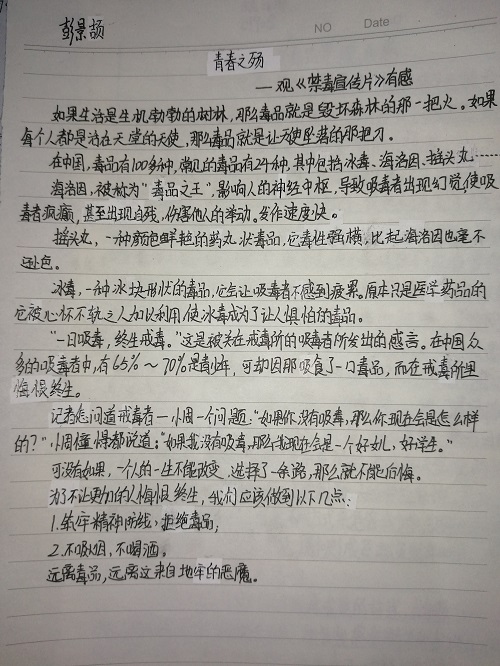 彭景颉
NO Date
青春之殇
——观《禁毒宣传片》有感
如果生活是生机勃勃的树林，那么毒品就是毁坏森林的那一把火。如果
每个人都是活在天堂的天使，那么毒品就是让天使坠落的那把刀。
在中国，毒品有100多种，常见的毒品有24种，其中包括冰毒、海洛因、摇头丸……
海洛因，被称为“毒品之王”，影响人的神经中枢，导致吸毒者出现幻觉，使吸
毒者疯癫，甚至出现自残，伤害他人的举动。发作速度快。
摇头丸，一种颜色鲜艳的药丸状毒品，它毒性强横，比起海洛因也毫不
逊色。
冰毒，一种冰块形状的毒品，它会让吸毒者不感到疲累。原本只是医学药品的
它被心怀不轨之人加以利用，使冰毒成为了让人惧怕的毒品。
“一日吸毒，终生戒毒。”这是被关在戒毒所的吸毒者所发出的感言。在中国众
多的吸毒者中，有65%～70%是青少年，可却因那吸食了一口毒品，而在戒毒所里
悔恨终生。
记者总问道戒毒者一小周一个问题：“如果你没有吸毒，那么你现在会是怎么样
的？”小周僮得都说道：“如果我没有吸毒，那么我现在会是一个好女儿，好学生。”
可没有如果，一个人的一生不能改变，选择了一条路，那么就不能后悔。
为了不让更加的人悔恨终生，我们应该做到以下几点：
1.筑牢精神防线，拒绝毒品；
2.不吸烟，不喝酒。
远离毒品，远离这来自地牢的恶魔。